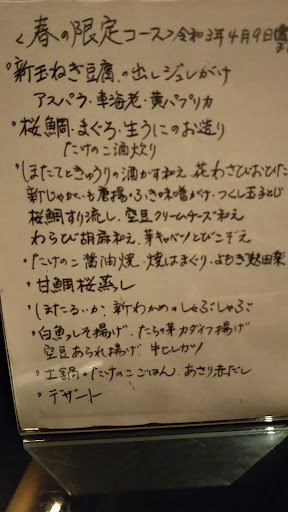 ＜春の限定コース＞令和3年4月9日
°新玉ねぎ豆腐.の出しジュレがけ
アスパラ・車海老・黄パプリカ
°桜鯛・まぐろ・生うにのお造り
たけのこ酒炊り
°ほたてときゅうりの酒かす和え、花わさびおひた
新じゃがいも唐揚・ふき味噌がけ・つくし玉子とじ
桜鯛すり流し・空豆クリームチーズ和え
わらび胡麻和え、芽キャベツとびこぞえ
°たけのこ醤油焼・焼はまぐり・よもぎ麩田楽
°甘鯛桜蒸し
°ほたるいか、新わかめのしゃぶしゃぶ
°白魚しそ揚げ、たらの芽カダイフ揚げ
空豆あられ揚げ 牛ヒレカツ
°土鍋のたけのこごはん・あさり赤だし
°デザート